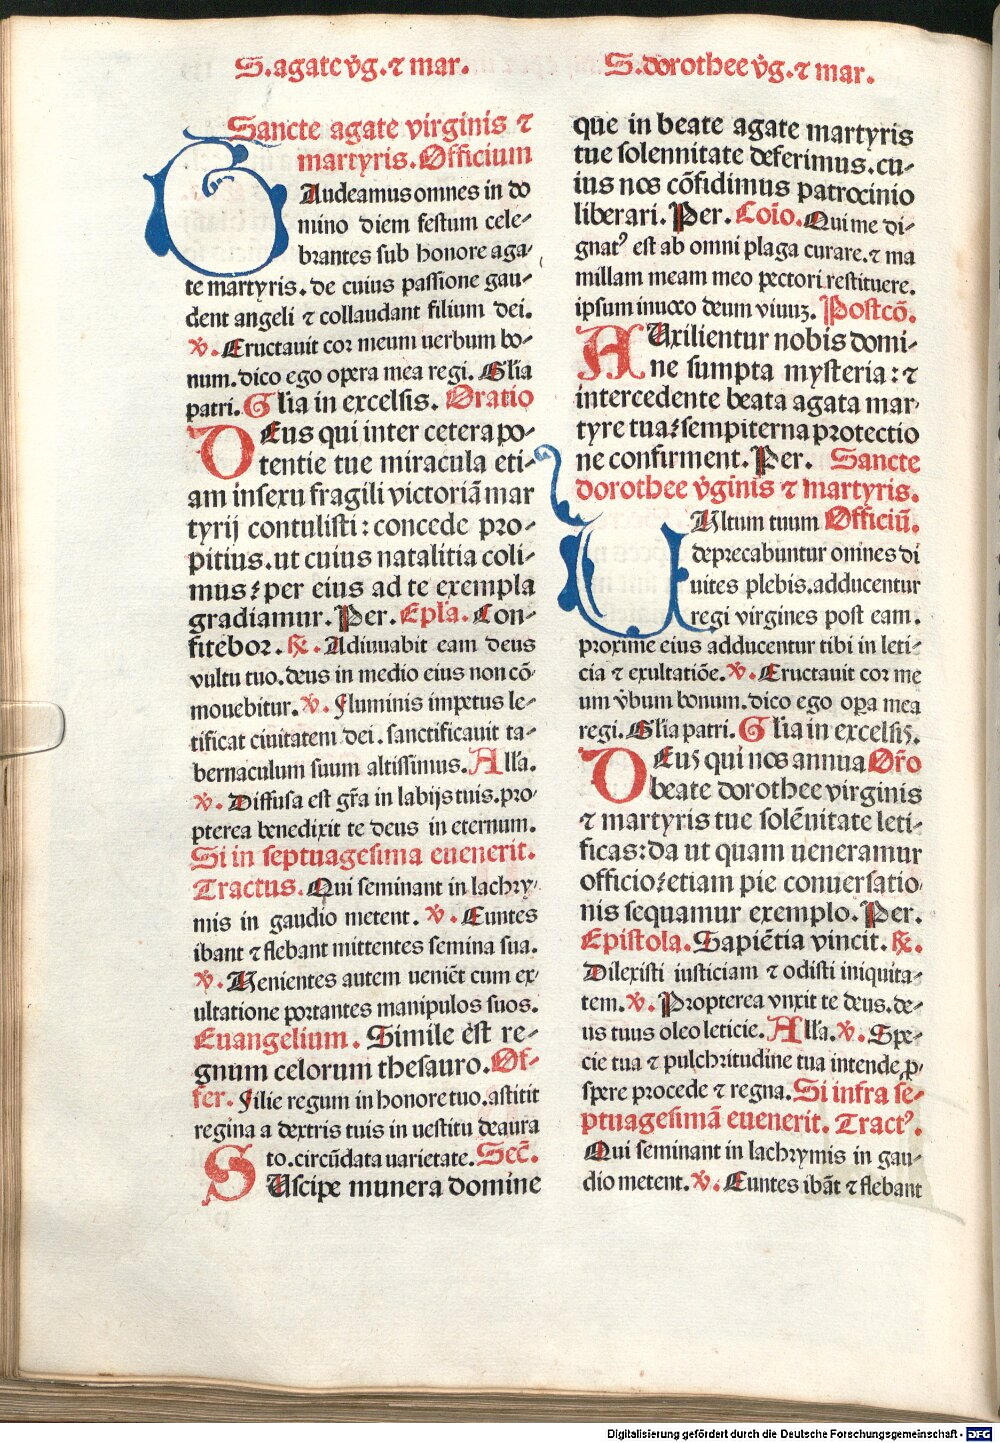 S. agate v̄g. ⁊ mar.
S. dorothee v̄g. ⁊ mar.
Sancte agate virginis ⁊
martyris. Officium
GAudeamus omnes in do
mino diem festum cele-
brantes sub honore aga-
te martyris. de cuius passione gau-
dent angeli ⁊ collaudant filium dei.
℣. Eructauit cor meum uerbum bo-
num. dico ego opera mea regi. Gl'ia
patri. Gl'ia in excelsis. Oratio
DEus qui inter cetera po-
tentie tue miracula eti-
am in sexu fragili victoriā mar
tyrij contulisti: concede pro-
pitius. ut cuius natalitia coli-
mus: per eius ad te exempla
gradiamur. Per. Epl'a. Con-
fitebor. ℟. Adiuuabit eam deus
vultu tuo. deus in medio eius non cō-
mouebitur. ℣. Fluminis impetus le-
tificat ciuitatem dei. sanctificauit ta-
bernaculum suum altissimus. All'a.
℣. Diffusa est gr̄a in labijs tuis. pro-
pterea benedixit te deus in eternum.
Si in septuagesima euenerit.
Tractus. Qui seminant in lachry-
mis in gaudio metent. ℣. Euntes
ibant ⁊ flebant mittentes semina sua.
℣. Uenientes autem ueniēt cum ex-
ultatione portantes manipulos suos.
Euangelium. Simile est re-
gnum celorum thesauro. Of-
fer. Filie regum in honore tuo. astitit
regina a dextris tuis in uestitu deaura
to. circūdata uarietate. Sec̄.
SUscipe munera domine
que in beate agate martyris
tue solennitate deferimus. cu-
ius nos cōfidimus patrocinio
liberari. Per. Coīo. Qui me di-
gnatꝰ est ab omni plaga curare. ⁊ ma
millam meam meo pectori restituere.
ipsum inuoco deum viuuꝫ. Postcō.
AUxilientur nobis domi-
ne sumpta mysteria: ⁊
intercedente beata agata mar-
tyre tua: sempiterna protectio
ne confirment. Per. Sancte
dorothee v̄ginis ⁊ martyris.
UUltum tuum Officiū.
deprecabuntur omnes di
uites plebis. adducentur
regi virgines post eam.
proxime eius adducentur tibi in leti-
cia ⁊ exultatiōe. ℣. Eructauit cor me
um v̄bum bonum. dico ego oꝑa mea
regi. Gl'ia patri. Gl'ia in excelsis.
DEus qui nos annua Or̄o
beate dorothee virginis
⁊ martyris tue solēnitate leti-
ficas: da ut quam ueneramur
officio: etiam pie conuersatio-
nis sequamur exemplo. Per.
Epistola. Sapiētia vincit. ℟.
Dilexisti iusticiam ⁊ odisti iniquita-
tem. ℣. Propterea vnxit te deus. de-
us tuus oleo leticie. All'a. ℣. Spe-
cie tua ⁊ pulchritudine tua intende, ꝓ-
spere procede ⁊ regna. Si infra se-
ptuagesimā euenerit. Tractꝰ.
Qui seminant in lachrymis in gau-
dio metent. ℣. Euntes ibāt ⁊ flebant
Digitalisierung gefördert durch die Deutsche Forschungsgemeinschaft - DFG